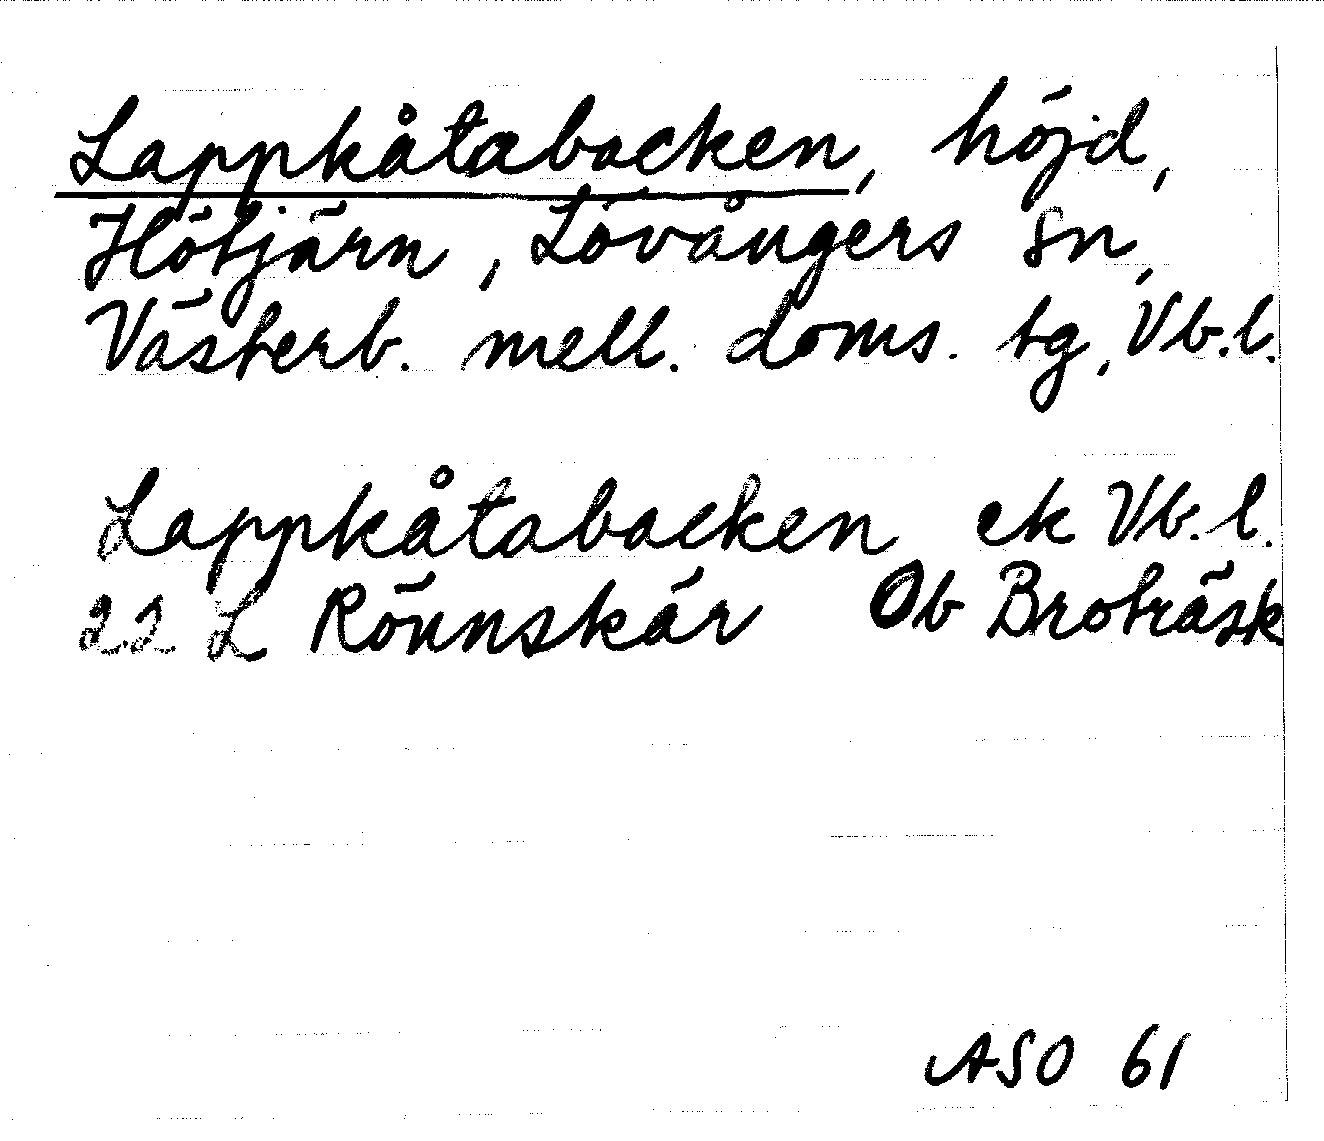 Lappkåtabacken, höjd,
Hötjärn, Lövångers sn,
Västerb. mell. doms. tg, Vb.l.
Lappkåtabacken ek Vb.l.
22 L Rönnskär Ob Broträsk
ASO 61